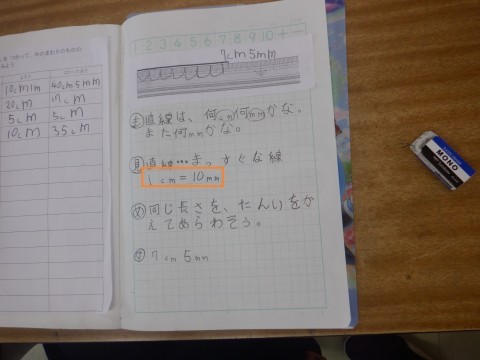 10cm1m 40cm5mm
20cm 17cm
5cm 5cm
10cm 35cm
1 2 3 4 5 6 7 8 9 10 + −
7cm5mm
直線は、何cm何mmかな。
また何mmかな。
見 直線…まっすぐな線
1cm=10mm
め 同じ長さを、たんいをか
えてあらわそう。
7cm 5mm
MONO